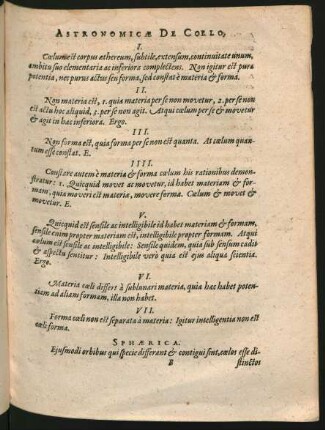 ASTRONOMICÆ DE COELO,
I.
Cœlum est corpus æthereum, subtile, extensum, continuitate unum,
ambitu suo elementaria ac inferiora complectens. Non igitur est pura
potentia, nec purus actus seu forma, sed constat è materia & forma.
II.
Non materia est, 1. quia materia per se non movetur, 2. per se non
est actu hoc aliquid, 3. per se non agit. Atqui cœlum per se & movetur
& agit in hæc inferiora. Ergo.
III.
Non forma est, quia forma per se non est quanta. At cœlum quan-
tum esse constat. E.
IIII.
Constare autem è materia & forma cœlum his rationibus demon-
stratur: 1. Quicquid movet ac movetur, id habet materiam & for-
mam, quia moveri est materiæ, movere forma. Cœlum & movet &
movetur. E.
V.
Quicquid est sensile ac intelligibile id habet materiam & formam,
sensile enim propter materiam est, intelligibile propter formam. Atqui
cœlum est sensile as intelligibele: Sensile quidem, quia sub sensum cadit
& aspectu sentitur: Intelligibile verò quia est ejus aliqua scientia.
Ergo.
VI.
Materia cœli differt à sublunari materia, quia hæc habet poten-
tiam ad aliam formam, illa non habet.
VII.
Forma cœli non est separata à materia: Igitur intelligentia non est
cœli forma.
SPHÆRICA.
Ejusmodi orbibus qui specie differant & contigui sint, cœlos esse di-
B
stinctos